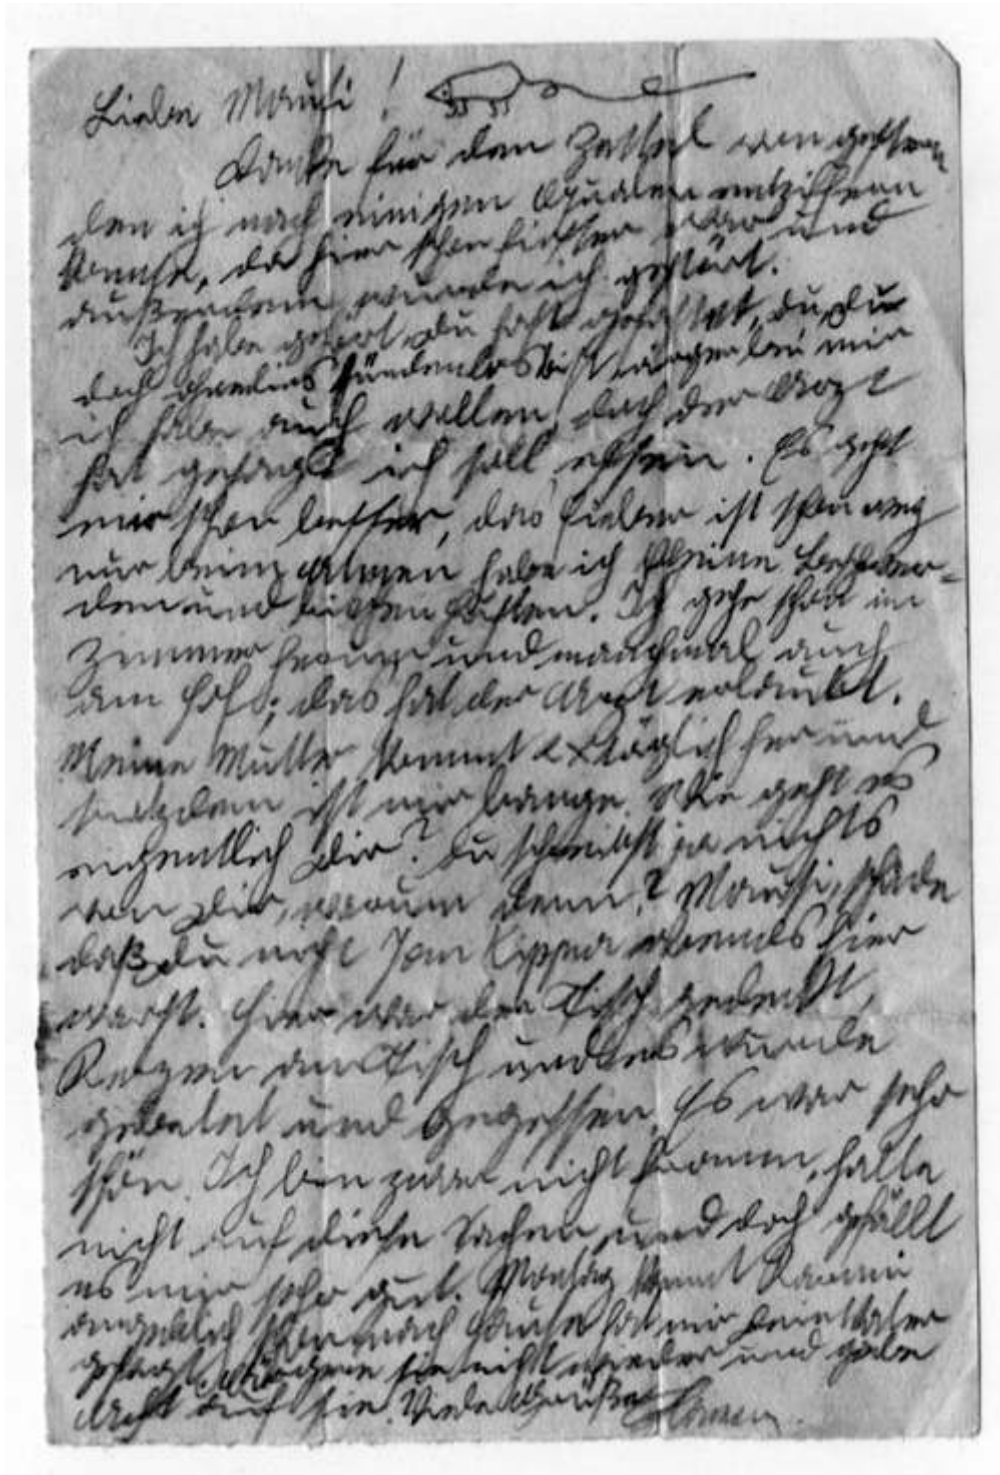 Liebe Mausi!
Danke für den Zettel von gestern
den ich nach einigen Qualen entziffern
konnte, da hier schon finster war und
außerdem wurde ich gestört.
Ich habe gehört du hast gefastet, du, du
doch sündenlos bist, wogegen bei mir
ich habe auch wollen, doch der Arzt
hat gesagt ich soll essen. Es geht
mir schon besser, das Fieber ist schon weg
nur beim Atmen habe ich kleine Beschwer-
den und bissen Husten. Ich gehe schon im
Zimmer herum und manchmal auch
am Hof; das hat der Arzt erlaubt.
Meine Mutter kommt 2x täglich her und
trotzdem ist mir bange. Wie geht es
eigentlich Dir? Du schreibst ja nichts
von Dir, warum denn? Mausi, schade
daß du nicht Jom Kippur abends hier
warst. Hier war der Tisch gedeckt,
Kerzen am Tisch und es wurde
gebetet und gegessen. Es war sehr
schön. Ich bin zwar nicht fromm, halte
nicht auf diese Sachen und doch gefällt
es mir sehr gut. Montag kommt
angeblich schon nach Hause hat mir Dein Vater
gesagt, ärgere sie nicht wieder und gebe
acht auf sie. Viele Grüße